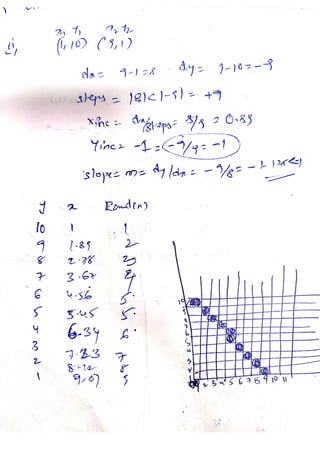 x₁ y₁ x₂ y₂
ii, (1,10) (9,1)
dx = 9-1=8 dy = 1-10=-9
steps = |8|<|-9| = +9
xinc = dx/steps = 8/9 = 0.89
Yinc = -1 = -9/9 = -1
slope = m = dy/dx = -9/8 = -1.125<1
y x Round(x)
10 1 1
9 1.89 2
8 2.78 3
7 3.67 4
6 4.56 5
5 5.45 5
4 6.34 6
3 7.23 7
2 8.12 8
1 9.01 9
10
9
8
7
6
5
4
3
2
1 2 3 4 5 6 7 8 9 10 11